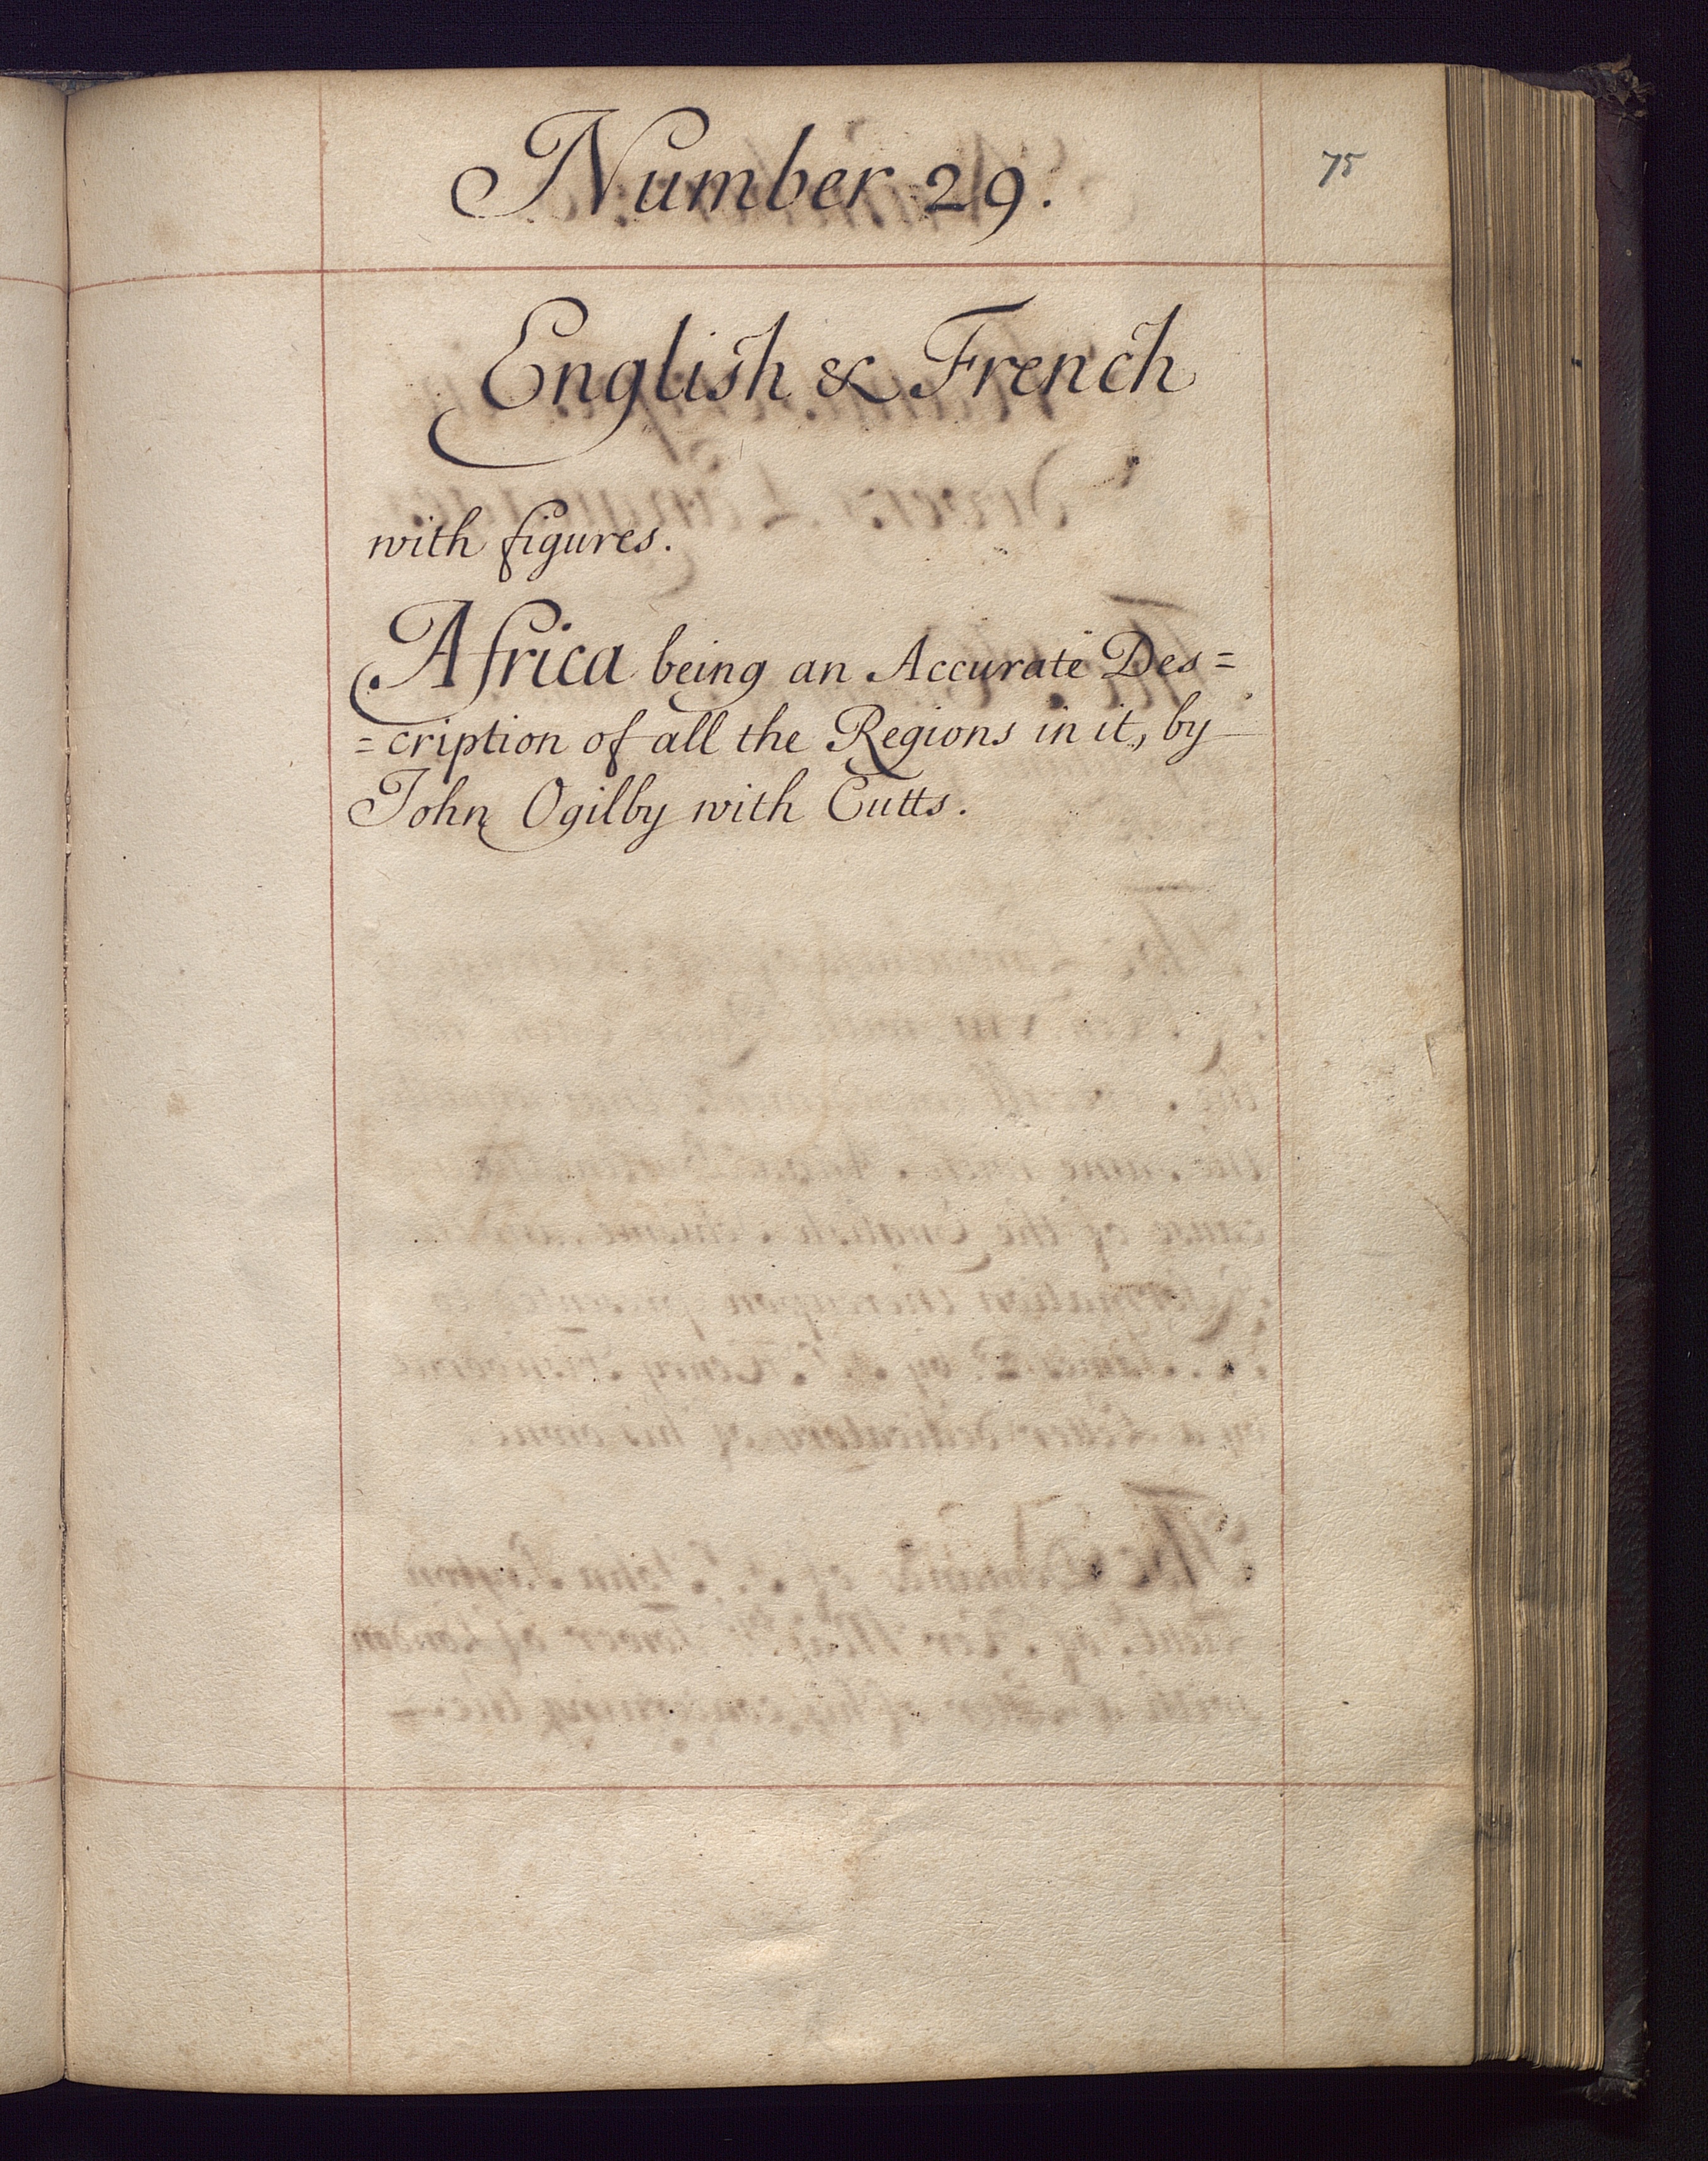 Number 29.
75
English & French
with figures.
Africa being an Accurate Des=
=cription of all the Regions in it, by
John Ogilby with Cutts.